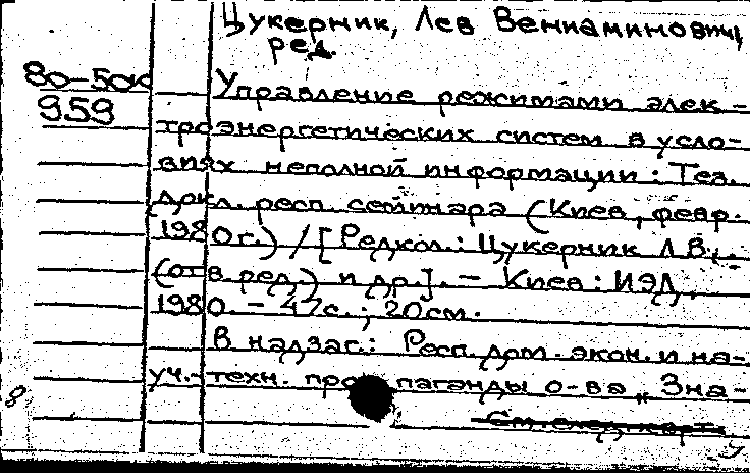 Цукерник, Лев Вениаминович,
ред.
80-50к
959
Управление режимами элек-
троэнергетических систем в усло-
виях неполной информации: Тез.
докл. респ. семинара (Киев, февр.
1980г.) / [Редкол.: Цукерник Л.В.
(отв. ред.) и др.]. - Киев: ИЭД,
1980. - 47с.; 20см.
В надзаг.: Респ. дом. экон. и на-
уч.-техн. пропаганды о-ва „Зна-
См. след. карт.
8